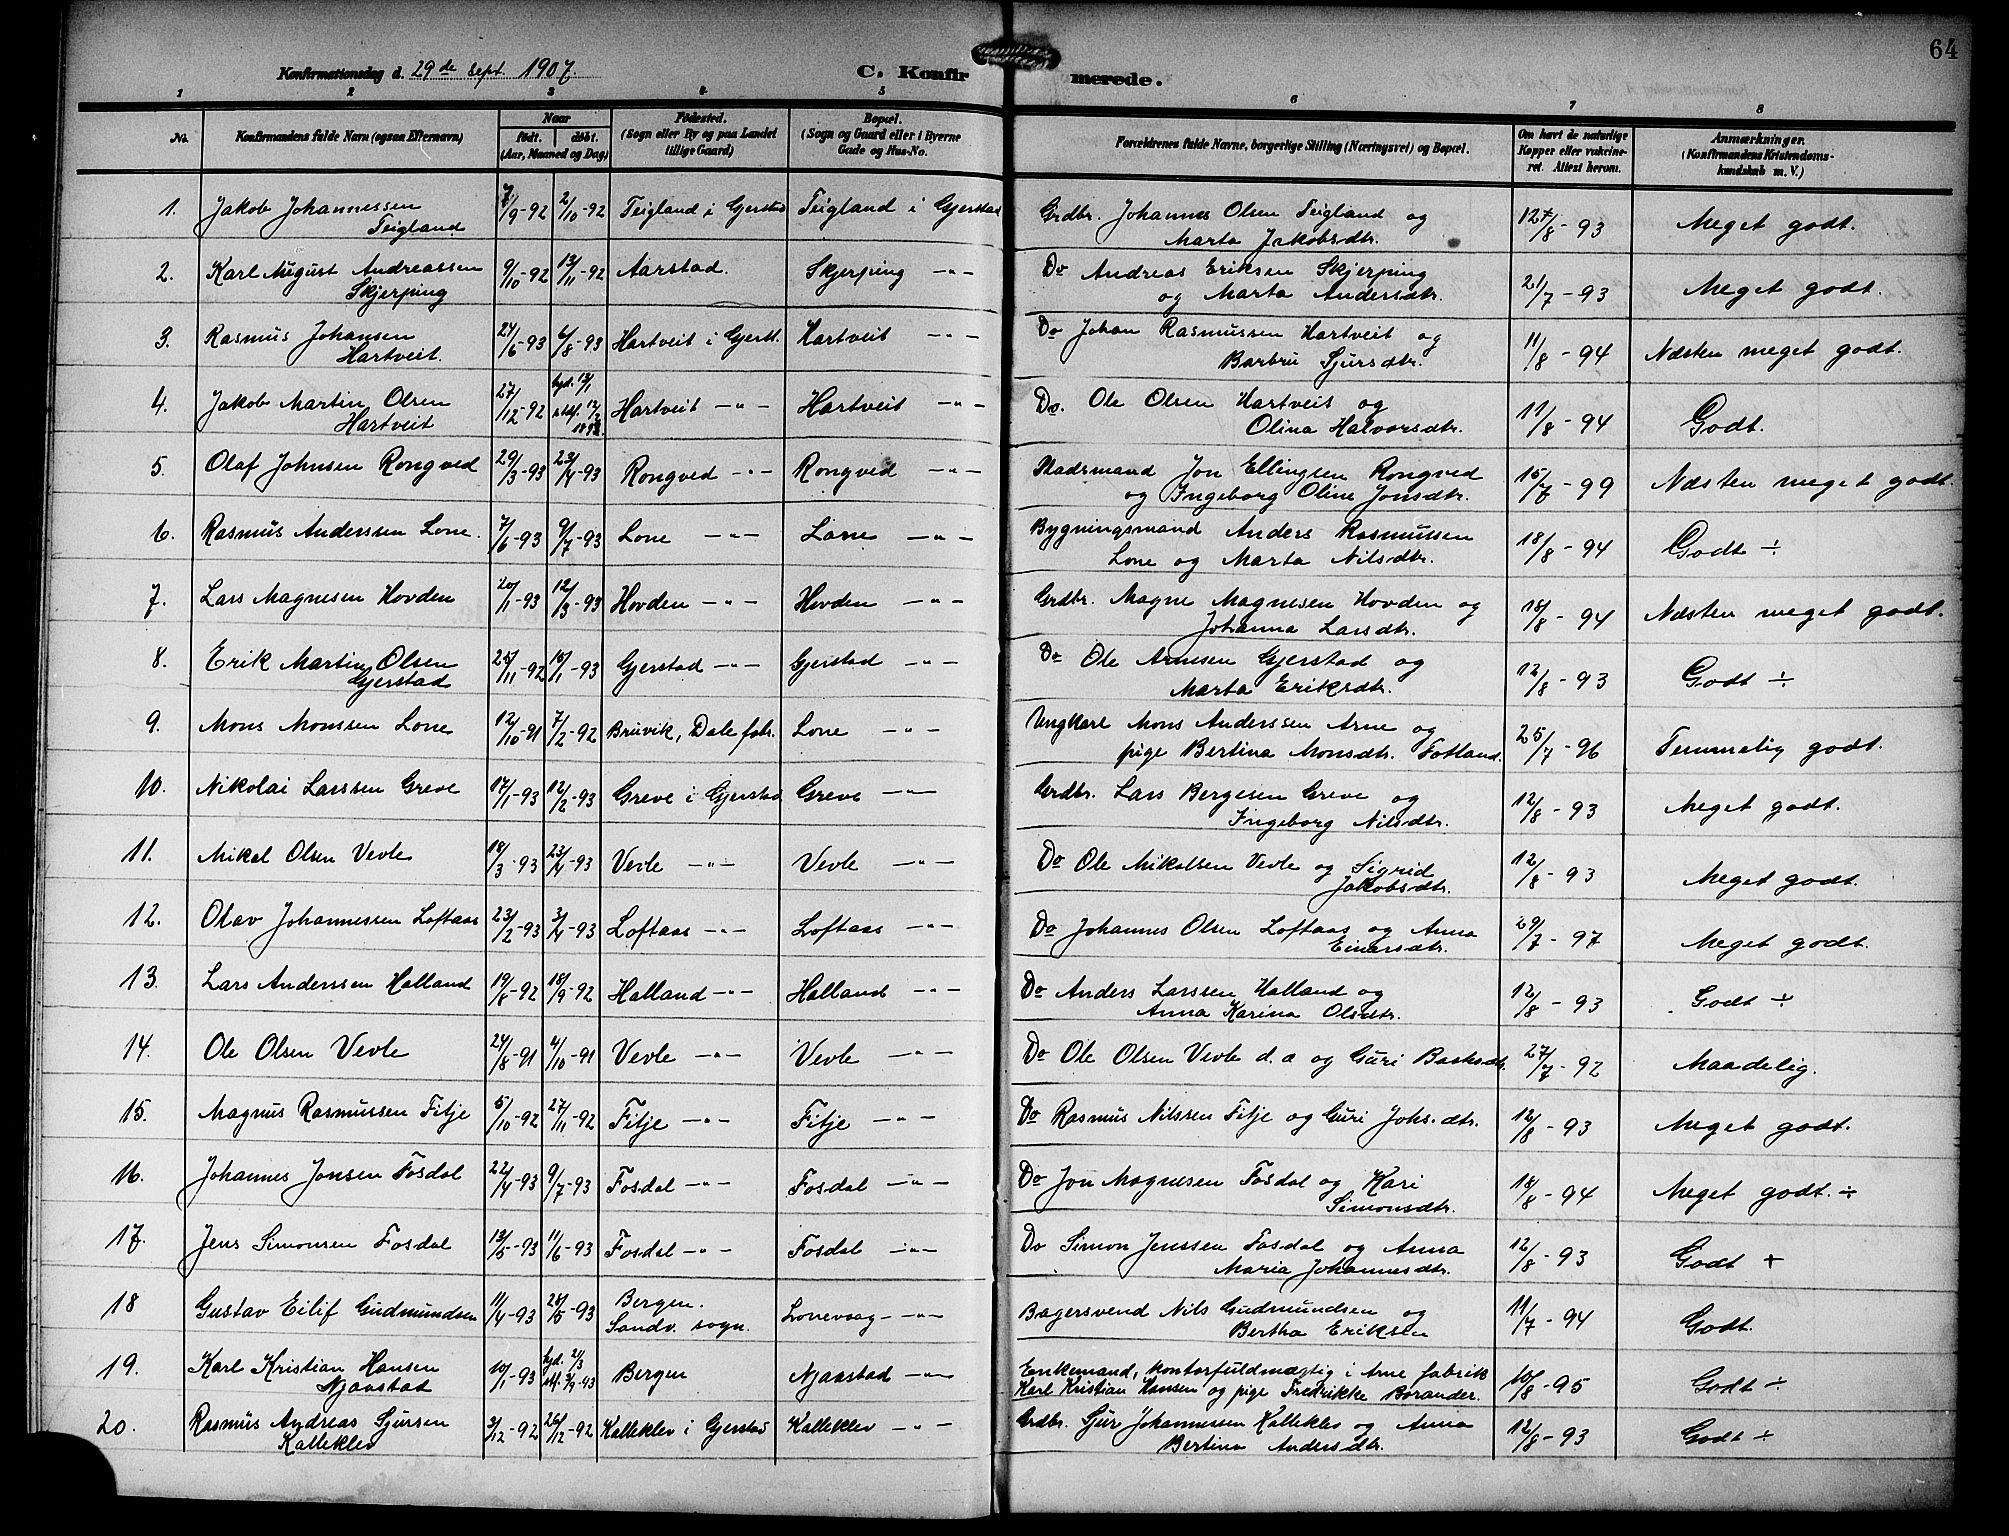 64
Konfirmationsdag d. 29de sept. 1907.
C. Konfirmerede.
1 2 3 4 5 6 7 8
No. Konfirmandens fulde Navn (ogsaa Efternavn) Naar født. døbt. (Aar, Maaned og Dag) Fødested. (Sogn eller By og paa Landet tillige Gaard) Bopæl. (Sogn og Gaard eller i Byerne Gade og Hus-No. Forældrenes fulde Navne, borgerlige Stilling (Næringsvei) og Bopæl. Om havt de naturlige Kopper eller vaccineret. Attest herom. Anmærkninger. (Konfirmandens Kristendomskundskab m. V.)
1. Jakob Johannessen Teigland 7/9-92 2/10-92 Teigland i Gjerstad Teigland i Gjerstad Grdbr. Johannes Olsen Teigland og Marta Jakobsdtr. 12/8-93 Meget godt.
2. Karl August Andreassen Skjerping 9/10-92 13/11-92 Aarstad. Skjerping -"- Do Andreas Eriksen Skjerping og Marta Andersdtr. 21/7-93 Meget godt.
3. Rasmus Johansen Hartveit. 27/6-93 6/8-93 Hartveit i Gjerst. Hartveit -"- Do Johan Rasmussen Hartveit og Barbru Sjursdtr. 11/8-94 Næsten meget godt.
4. Jakob Martin Olsen Hartveit 27/12-92 Hartveit -"- Hartveit -"- Do. Ole Olsen Hartveit og Olina Halvorsdtr. 11/8-94 Godt.
5. Olaf Johnsen Rongved 29/3-93 23/4-93 Rongved -"- Rongved -"- Pladsmand Jon Ellingsen Rongved og Ingeborg Oline Jonsdtr. 15/7-99 Næsten meget godt
6. Rasmus Anderssen Lone. 7/6-93 9/7-93 Lone -"- Lone -"- Bygningsmand Anders Rasmussen Lone og Marta Nilsdtr. 18/8-94 Godt ÷
7. Lars Magnesen Hovden 20/1-93 12/3-93 Hovden -"- Hovden -"- Grdbr. Magne Magnesen Hovden og Johanna Larsdtr. 18/8-94 Næsten meget godt.
8. Erik Martin Olsen Gjerstad 25/11-92 15/1-93 Gjerstad -"- Gjerstad -"- Do Ole Arnesen Gjerstad og Marta Eriksdtr. 12/8-93 Godt ÷
9. Mons Monssen Lone 12/10-91 7/2-92 Bruvik, Dale fabr. Lone -"- Ungkarl Mons Anderssen Arne og pige Bertina Monsdtr. Fotland. 25/7-96 Temmelig godt.
10. Nikolai Larssen Greve 17/1-93 12/2-93 Greve i Gjerstad Greve -"- Grdbr. Lars Bergesen Greve og Ingeborg Nilsdtr. 12/8-93 Meget godt.
11. Mikal Olsen Vevle 18/3-93 23/4-93 Vevle -"- Vevle -"- Do Ole Mikalsen Vevle og Sigrid Jakobsdtr. 12/8-93 Meget godt.
12. Olav Johannessen Loftaas 23/2-93 3/4-93 Loftaas -"- Loftaas -"- Do Johannes Olsen Loftaas og Anna Einarsdtr. 29/7-97 Meget godt.
13. Lars Anderssen Halland 19/8-92 18/9-92 Halland -"- Halland -"- Do Anders Larssen Halland og Anna Karina Olsdtr. 12/8-93 Godt ÷
14. Ole Olsen Vevle 24/8-91 4/10-91 Vevle -"- Vevle -"- Do Ole Olsen Vevle d. a og Guri Baardsdtr. 27/7-92 Maadelig.
15. Magnus Rasmussen Fitje 5/10-92 27/11-92 Fitje -"- Fitje -"- Do Rasmus Nilssen Fitje og Guri Johs.dtr. 12/8-93 Meget godt.
16. Johannes Jonsen Fosdal 22/4-93 9/7-93 Fosdal -"- Fosdal -"- Do Jon Magnesen Fosdal og Kari Simonsdtr. 18/8-94 Meget godt. ÷
17. Jens Simonsen Fosdal 13/5-93 11/6-93 Fosdal -"- Fosdal -"- Do Simon Jenssen Fosdal og Anna Maria Johannesdtr. 12/8-93 Godt +
18 Gustav Eilif Gudmundsen 11/4-93 28/5-93 Bergen. Sandv. sogn. Lonevaag -"- Bagersvend Nils Gudmundsen og Bertha Eriksen 11/7-94 Godt.
19. Karl Kristian Hansen Njaastad 10/1-93 Bergen Njaastad -"- Enkemand, kontorfuldmægtig i Arne fabrik Karl Kristian Hansen og pige Fredrikke Borander. 10/8-95 Godt ÷
20. Rasmus Andreas Sjursen Kalleklev 3/12-92 26/12-92 Kalleklev i Gjerstad Kalleklev -"- Grdbr. Sjur Johannessen Kalleklev og Anna Bertina Andersdtr. 12/8-93 Godt ÷